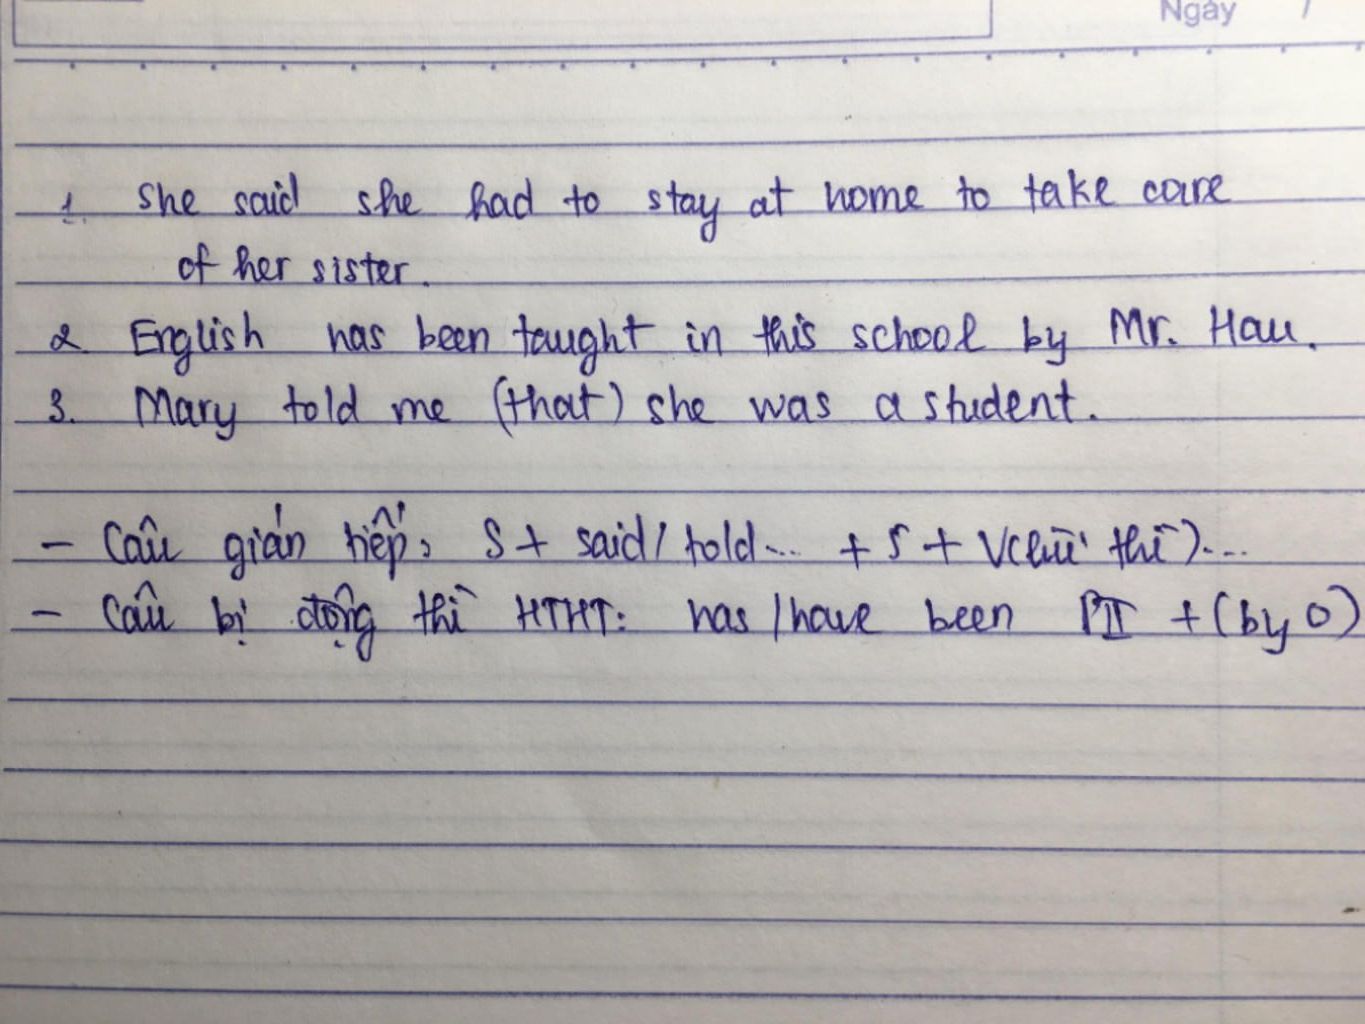 Ngày /
1. She said she had to stay at home to take care
of her sister.
2. English has been taught in this school by Mr. Hau.
3. Mary told me (that) she was a student.
- Câu gián tiếp: S + said / told... + S + V(lùi thì)...
- Câu bị động thì HTHT: has / have been PII + (by O)